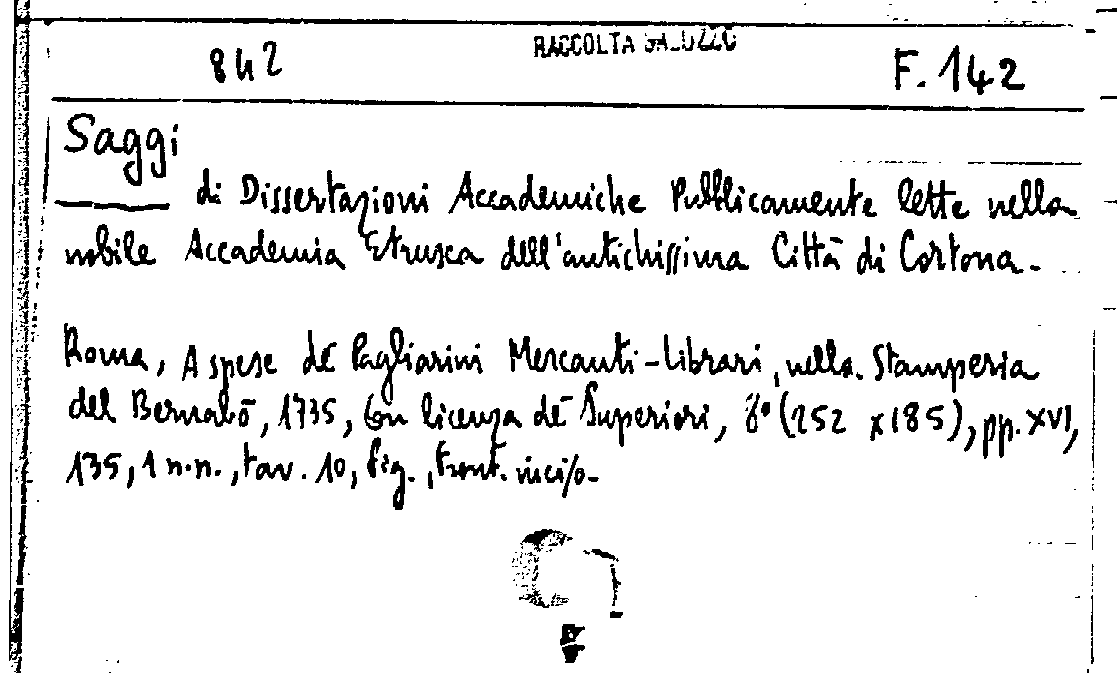 842 RACCOLTA SALUZZO F. 142
Saggi
di Dissertazioni Accademiche Pubblicamente lette nella
nobile Accademia Etrusca dell'antichissima Città di Cortona.
Roma, A spese de' Pagliarini Mercanti-Librari, nella Stamperia
del Bernabò, 1735, Con licenza de' Superiori, 8° (252 x 185), pp. XVI,
135, 1 n.n., tav. 10, fig., front. inciso.